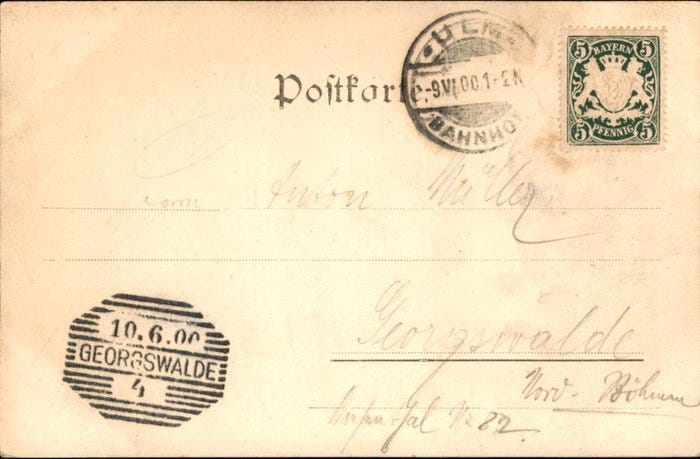 ULM
-9 VI 00.1-2N
BAHNHOF
Postkarte
5 BAYERN 5
5 PFENNIG 5
Herrn Anton Müller
Georgswalde
Nord-Böhmen
No 22.
10.6.00
GEORGSWALDE
4